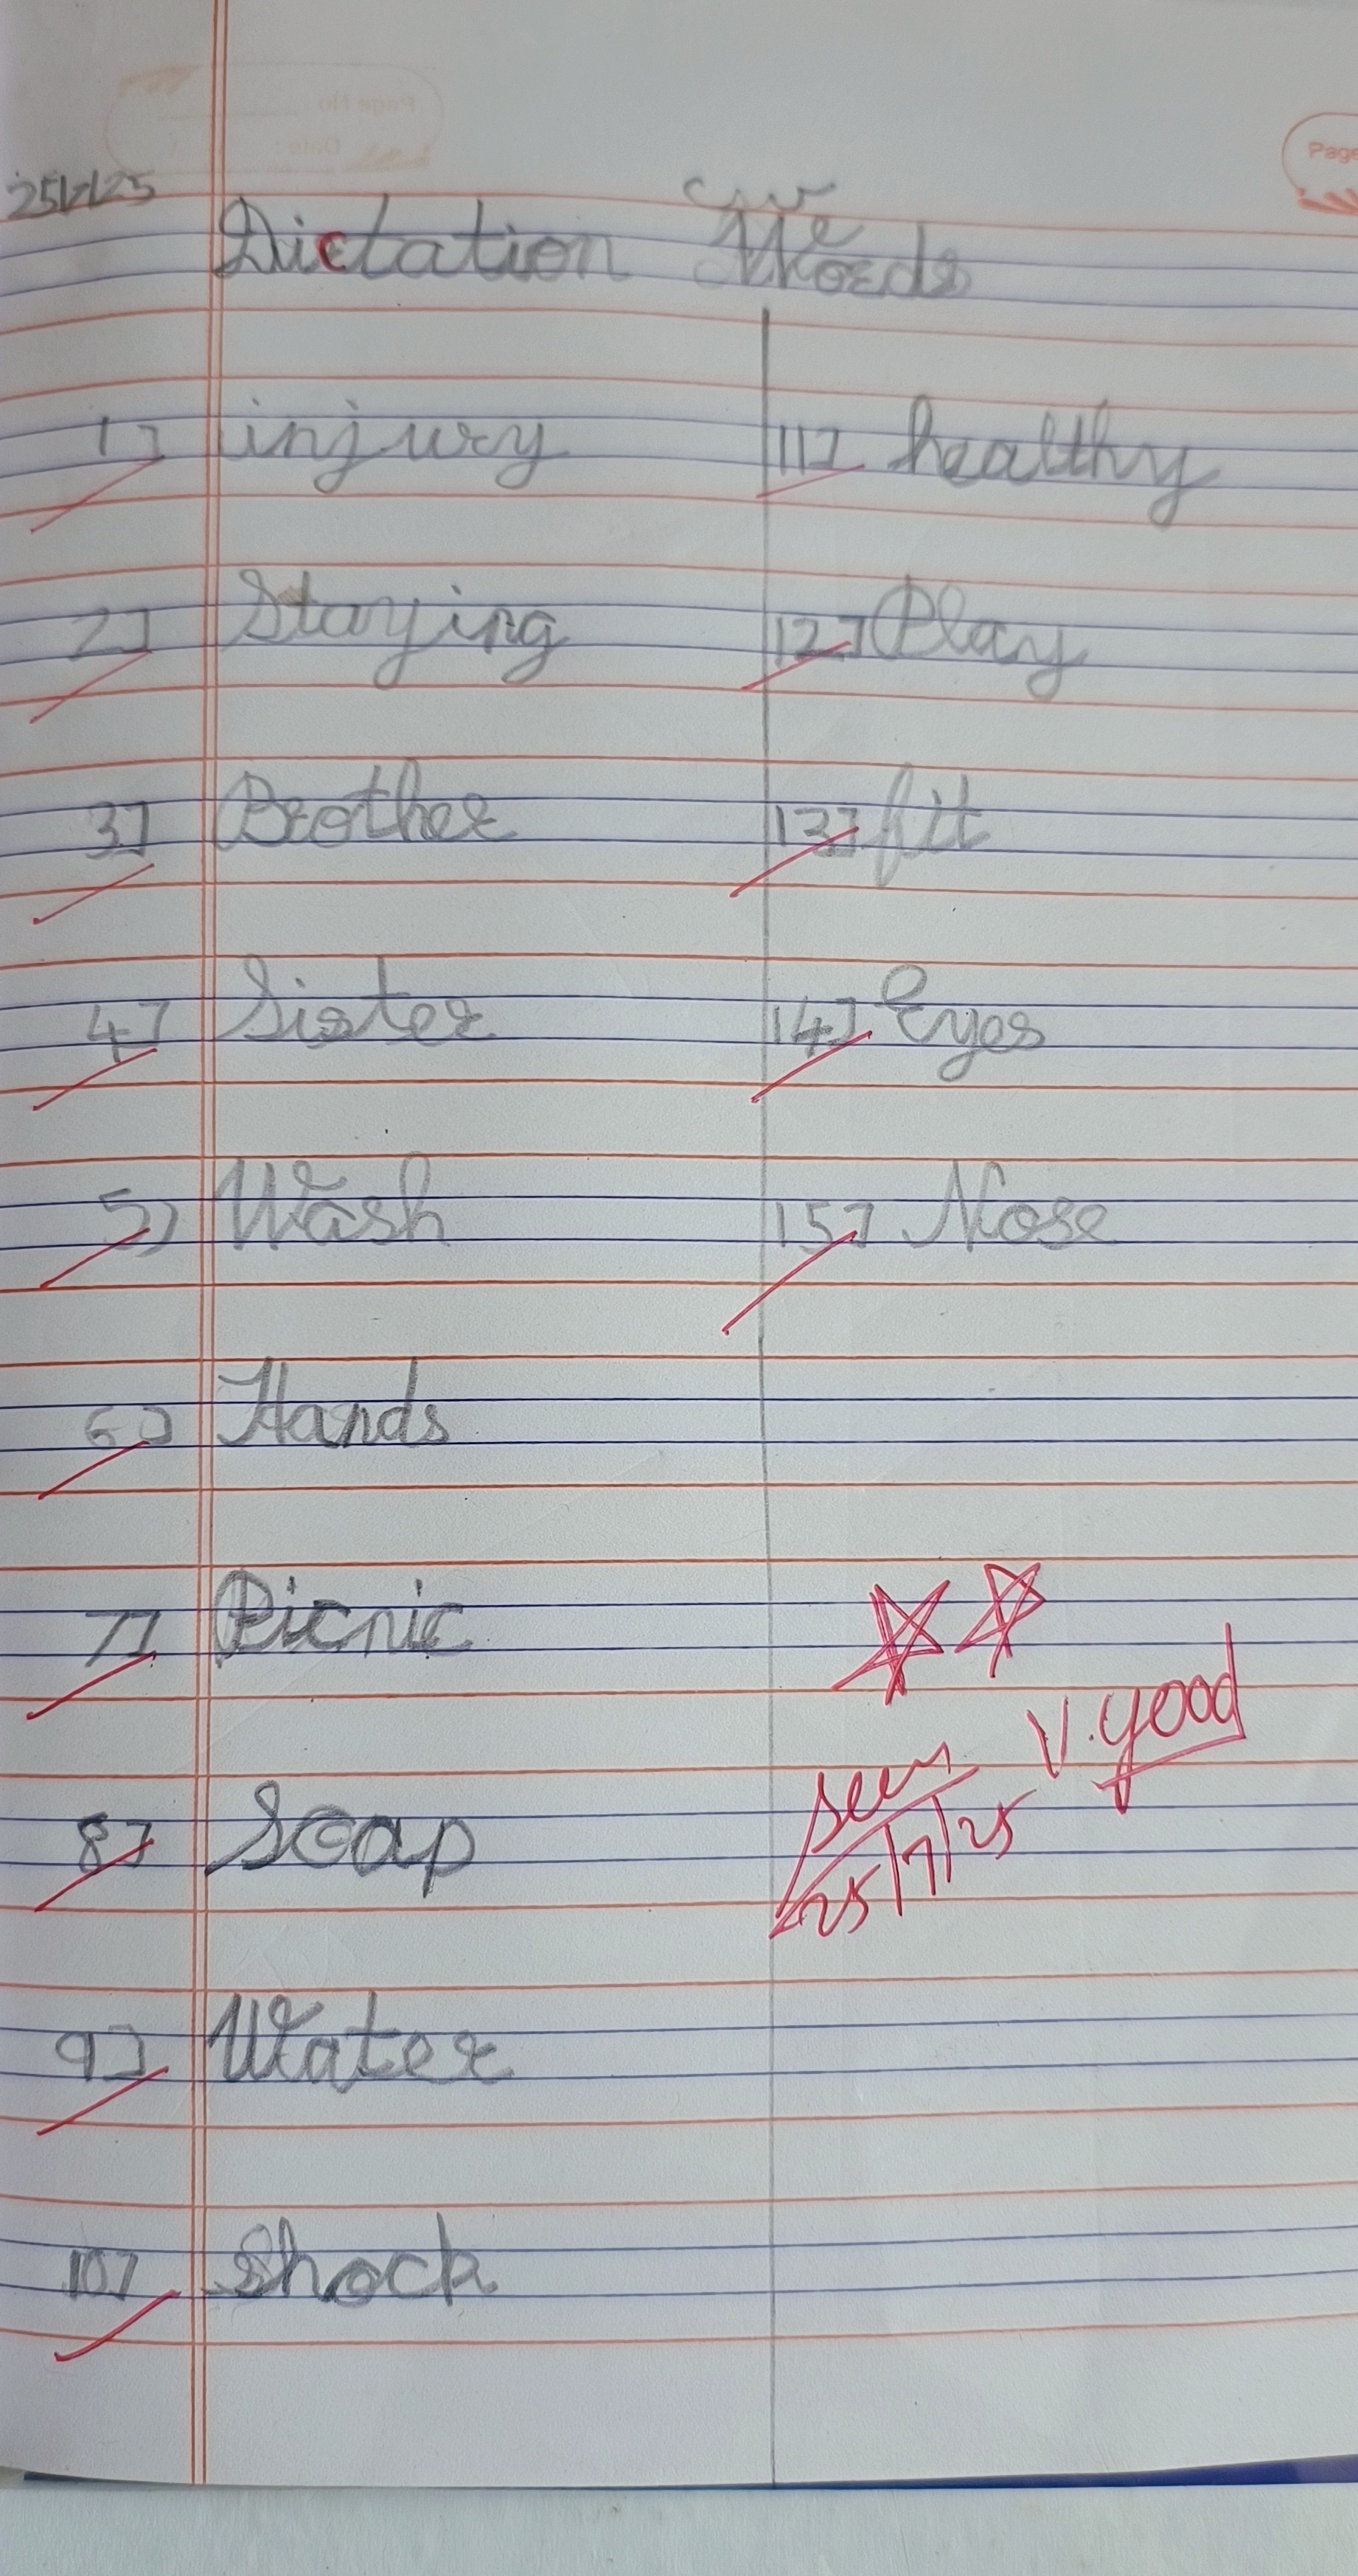 25/7/25
C.W
Dictation Words
1] injury
2] Staying
3] Brother
4] Sister
5] Wash
6] Hands
7] Picnic
8] Soap
9] Water
10] Shock
11] healthy
12] Play
13] fit
14] Eyes
15] Nose
V. good
seen
25/7/25
Page No.
Date:
Page